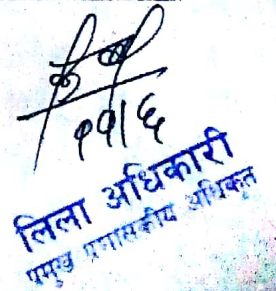 ११।६
लिला अधिकारी
प्रमुख प्रशासकीय अधिकृत